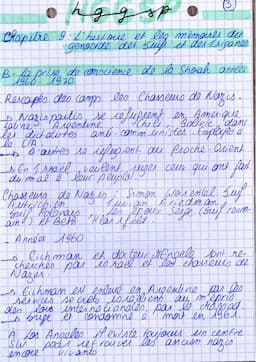 h g g s p
3
Chapitre 9 : L'histoire et les mémoires du
génocide des Juifs et des Tziganes
B. La prise de conscience de la Shoah années
1960 - 1970
Rescapés des camps les Chasseurs de Nazis.
→ Nazis partis, se refugient en Amérique
latine, Argentine, Chili, Bolivie dans
les dictatures anti-communistes.
la CIA.
→ D'autres se refugient au Proche-Orient
→ En Israël veulent juger ceux qui ont fait
du mal à leur peuple.
Chasseurs de Nazis : Simon Juif
Autrichien Friedman
Juif Polonais Les époux
et
- Années 1960
→ Eichman et docteur Mengele sont re-
cherchés par Israël et les chasseurs de
Nazis
→ Eichman est enlevé en Argentine par les
services secrets israéliens au mépris
des lois internationales, par le Mossad.
→ Jugé et condamné à mort en 1961.
A Los Angeles il existe toujours un centre
SW pour retrouver les ancien nazis
encore vivants